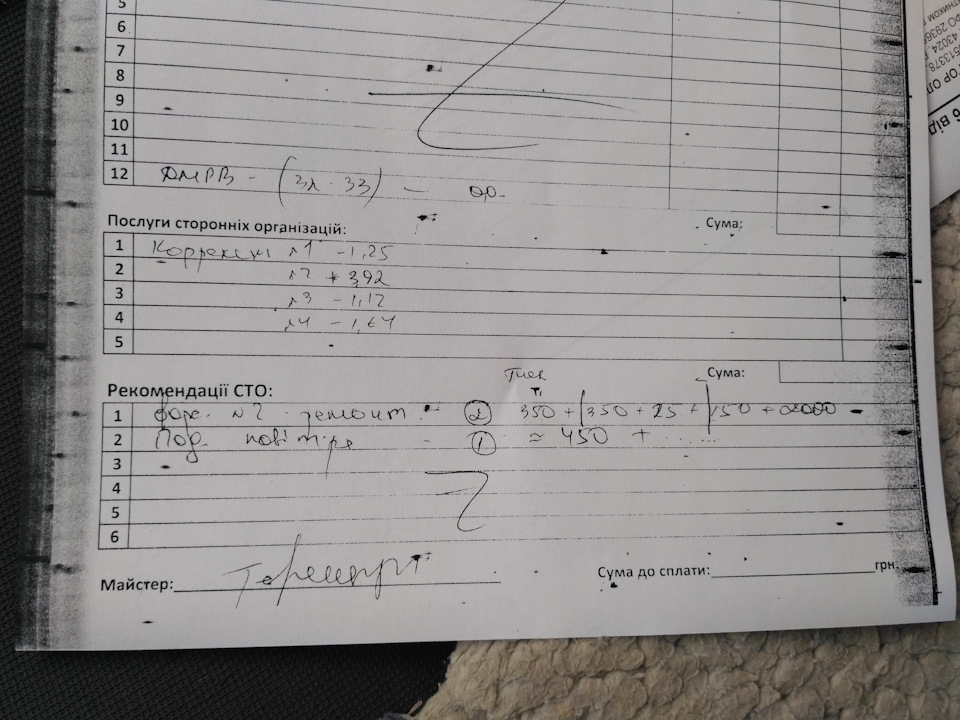 5
6
7
8
9
10
11
12 ДМРВ - (32 - 33) - о.о.
Послуги сторонніх організацій: Сума:
1 Коррекции №1 -1,25
2 №2 + 3,92
3 №3 - 1,12
4 №4 - 1,64
5
Рекомендації СТО: Сума:
1 фор. №2 - ремонт - ② 350 + 350 + 25 + 150 + 2000 -
2 Под. повітря - ① ≈ 450 + ......
3
4
5
6
Майстер: Сума до сплати: грн.